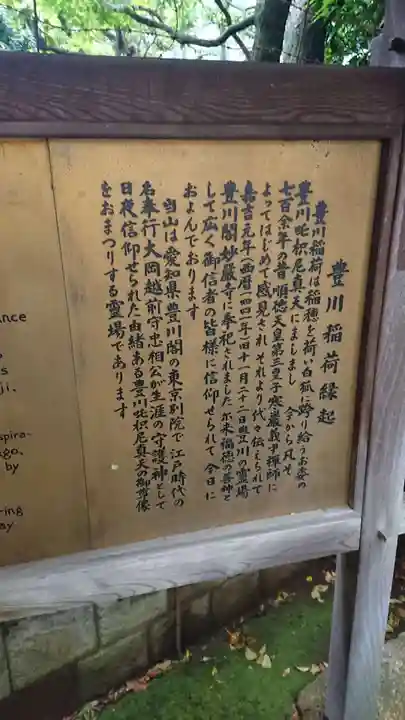 豊川稲荷縁起
豊川稲荷は稲穂を荷い白狐に跨り給うお姿の
豊川吒枳尼真天にましまし 今から凡そ
七百余年の昔 順徳天皇第三皇子寒巌義尹禅師に
よってはじめて感見され それより代々伝えられて
嘉吉元年(西暦一四四一年)旧十一月二十二日豊川の霊場
豊川閣妙厳寺に奉祀されましたが 来福徳の善神と
して広く御信者の皆様に信仰せられて今日に
およんでおります
当山は愛知県豊川閣の東京別院で江戸時代の
名奉行大岡越前守忠相公が生涯の守護神として
日夜信仰せられた由緒ある豊川吒枳尼真天の御尊像
をおまつりする霊場であります
ance
s
ji.
spira-
ago,
by
-ing
ay